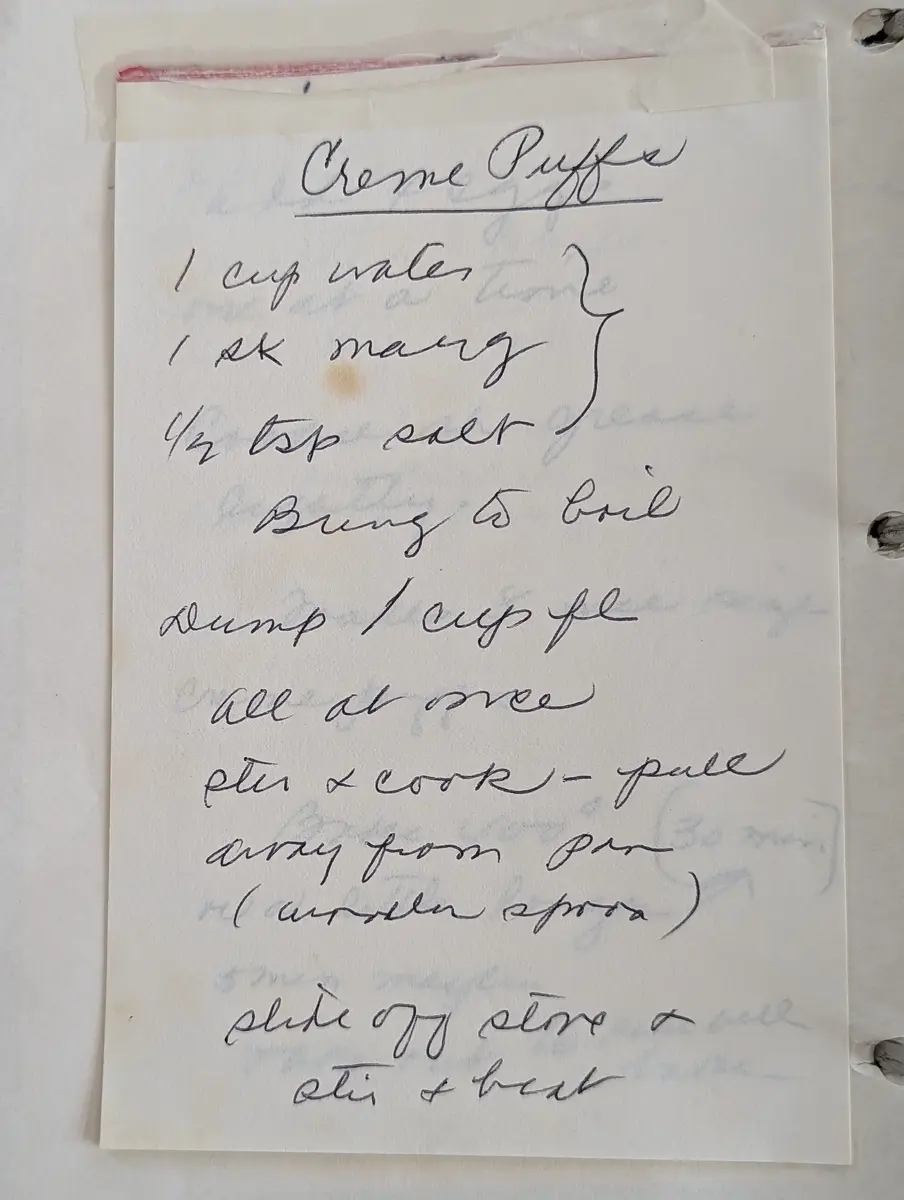 Creme Puffs
1 cup water
1 sk marg
1/2 tsp salt
Bring to boil
Dump 1 cup fl
all at once
stir & cook - pull
away from pan
(wooden spoon)
slide off stove &
stir & beat